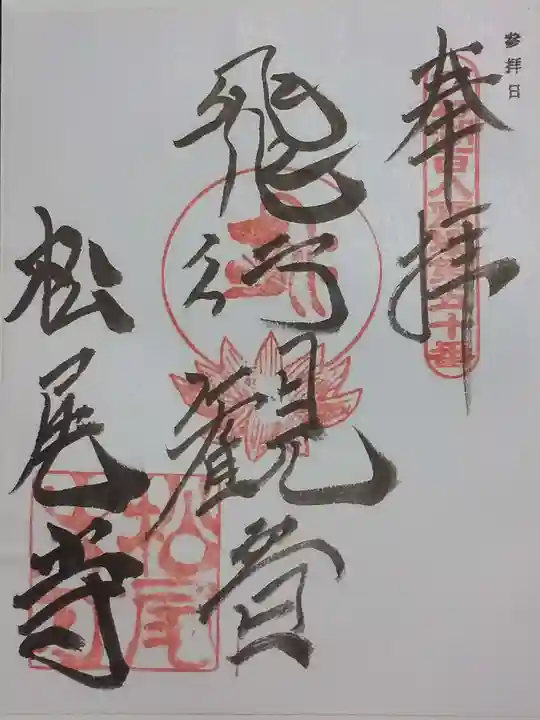 参拝日
奉拝
飛行観音
松尾寺
松尾